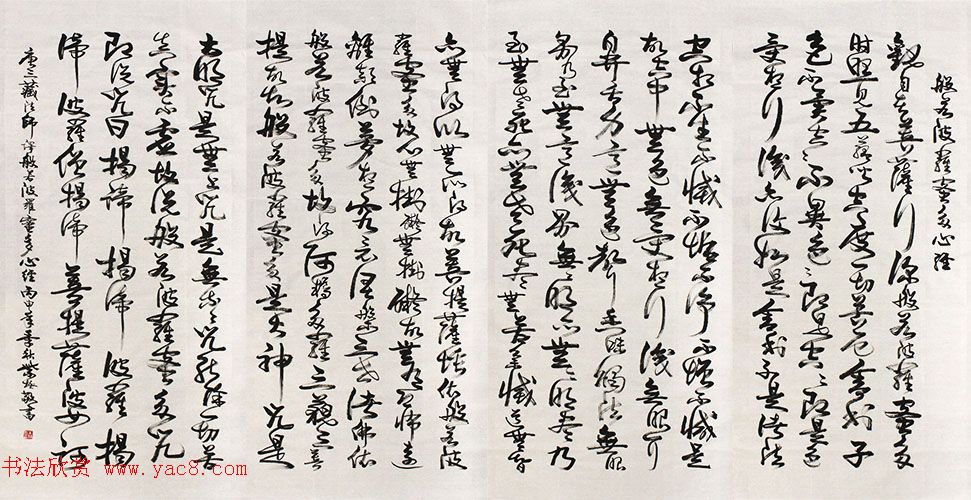 般若波羅蜜多心經
觀自在菩薩行深般若波羅蜜多
時照見五蘊皆空度一切苦厄舍利子
色不異空空不異色色即是空空即是色
受想行識亦復如是舍利子是諸法
空相不生不滅不垢不淨不增不減是
故空中無色無受想行識無眼耳
鼻舌身意無色聲香味觸法無眼
界乃至無意識界無無明亦無無明盡乃
至無老死亦無老死盡無苦集滅道無智
亦無得以無所得故菩提薩埵依般若波
羅蜜多故心無掛礙無掛礙故無有怖遠
離顛倒夢想究竟涅槃三世諸佛依
般若波羅蜜多故得阿耨多羅三藐三菩
提故知般若波羅蜜多是大神咒是
大明咒是無上咒是無等等咒能除一切苦
真實不虛故說般若波羅蜜多咒
即說咒曰揭諦揭諦波羅揭
諦波羅僧揭諦菩提薩婆訶
唐三藏法師譯般若波羅蜜多心經丙申年季秋敬書
书法欣赏 www.yac8.com